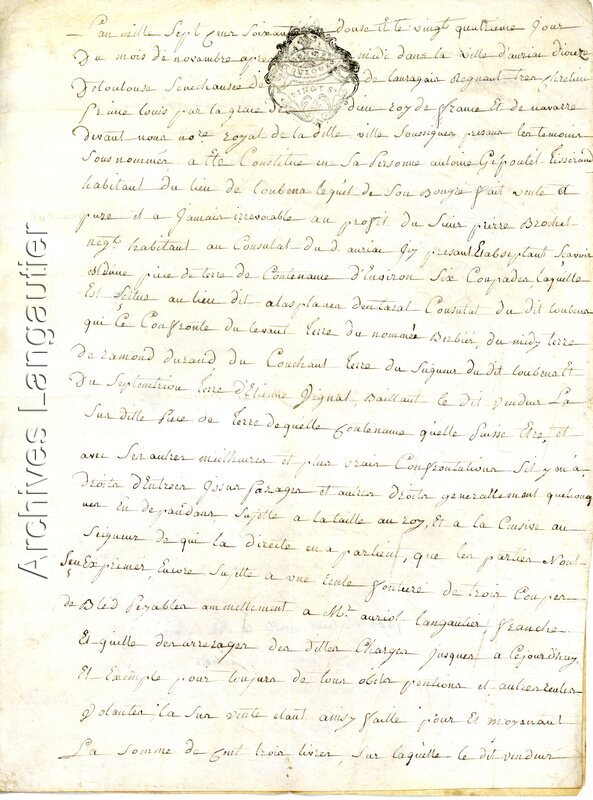 L'an mille Sept Cens Soixante douse Et le vingt quatrieme Jour
Du mois de novembre apres midi dans la ville d'auriac dioceze
De toulouse Senechaussée de Lauragais Regnant tres chretien
Prince Louis par la grace de dieu roy de france Et de navarre
Devant nous no.re royal de la ditte ville Soussignes presans les temoins
Sous nommes a Eté Constitué en Sa personne antoine tisserand
habitant du lieu de Loubens lequel de Son Bongre fait vente
pure et a Jamais irrevocable au profit du Sieur pierre Brochet
neg.t habitant au Consulat du d. auriac Icy presant Et abseptant Scavoir
est d'une piece de terre de Contenance d'Environ Six Coupades laquelle
Est Scitue au lieu dit a las planes Consulat du dit Loubens
qui Se Confronte du Levant terre du nommée Berbier, du midy terre
de ramond durand du Couchant terre du Seigneur du dit Loubens Et
Du Septentrion terre d'Etienne Vignal, Baillant le dit vendeur La
Sur ditte Piece de terre de quelle Contenance qu'elle Puisse Etre, et
avec Ses autres meilleures et plus vraies Confrontations Sil y en a
Droits d'Entrées Issues passages et autres droits generallement quelconq
ues En depandans Sujette a la taille au roy, Et a la Censive au
Seigneur de qui la directe en apartient, que les parties N'ont
Sçu Exprimer, Encore Sujette a une rente fontiere de trois Coupes
de Bled Payables annuellement a Mr. auriol Langautier, franche
Et quitte des arrerages des dittes Charges jusques a Cejourdhuy
Et Exempte pour toujours de tous obits pentions et autres rentes
Volantes la Sur vente etant ainsy faitte pour Et moyenant
La Somme de Cent trois livres, Sur laquelle le dit vendeur
Archives Langautier